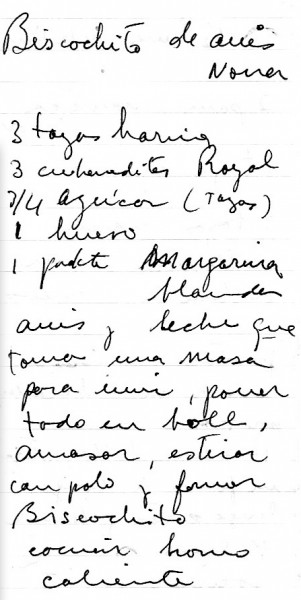 Biscochito de anis
Norer
3 tazas harina
3 cucharaditas Royal
3/4 azúcar (Tazas)
1 huevo
1 pakete Margarina
blanda
anis y leche que
toma una masa
para unir, poner
todo en boll,
amasar, estirar
con palo y formar
Biscochito
cocinar horno
caliente